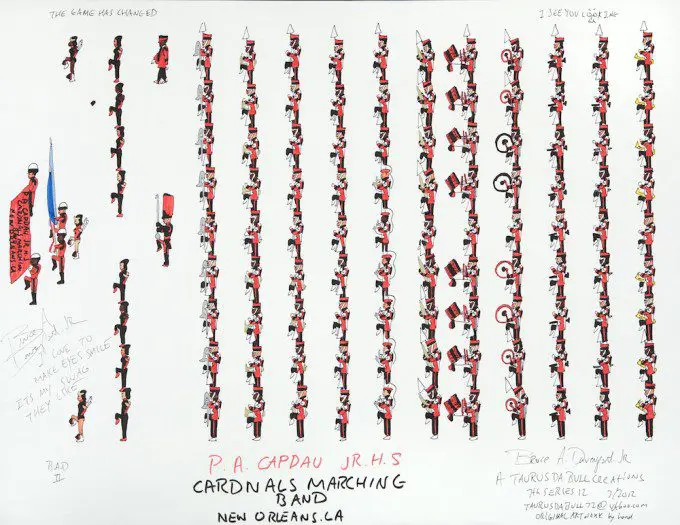 THE GAME HAS CHANGED
I SEE YOU LOOKING
P.A CAPDAU JR. H.S
CARDNALS MARCHING
I LOVE TO
MAKE EYES SMILE
ITS MY SWAG
THEY LIKE
BAD
II
P. A. CAPDAU JR. H.S
CARDNALS MARCHING
BAND
NEW ORLEANS. LA
A. Jr
A TAURUS DA BULL CREATIONS
7th SERIES 12 7/2012
TAURUSDABULL72@yahoo.com
ORIGINAL ART WORK by hand